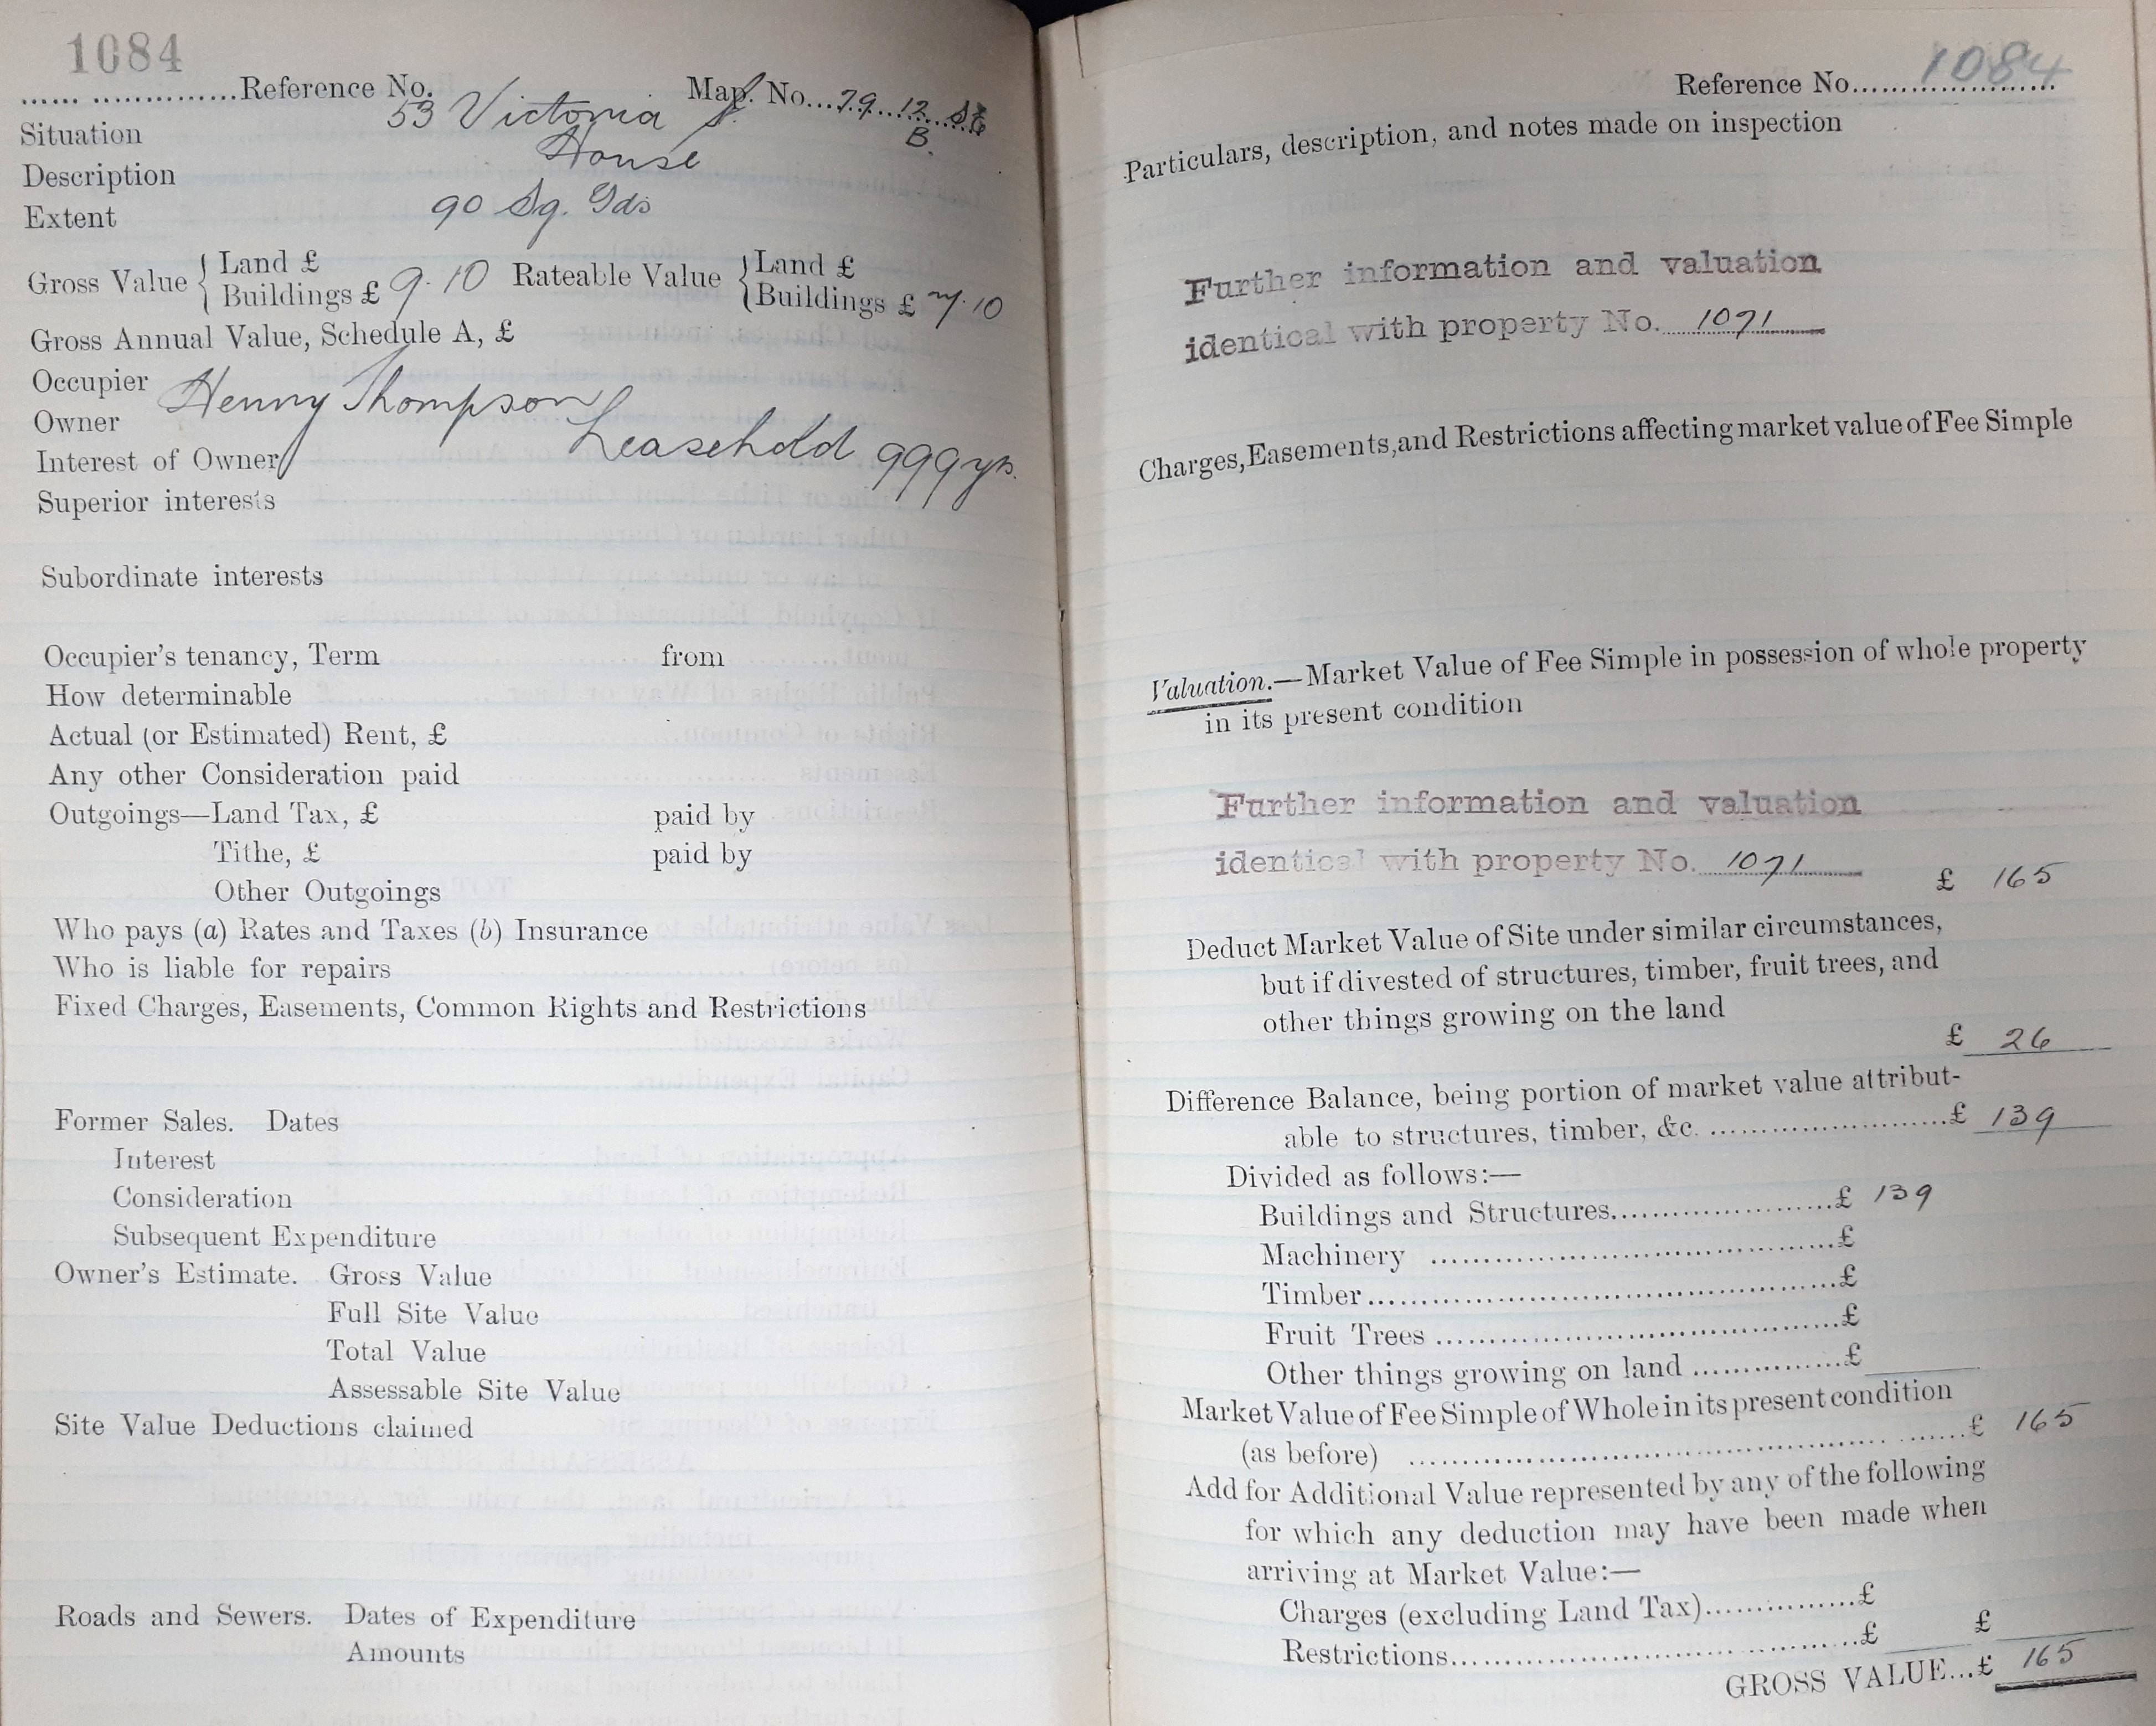 1084
Reference No. Map. No. 79 12
B.
Situation 53 Victoria St
Description House
Extent 90 Sq. Yds
Gross Value { Land £ Rateable Value { Land £
Buildings £ 9.10 Buildings £ 7.10
Gross Annual Value, Schedule A, £
Occupier
Owner Henry Thompson
Interest of Owner Leasehold 999 yrs.
Superior interests
Subordinate interests
Occupier's tenancy, Term from
How determinable
Actual (or Estimated) Rent, £
Any other Consideration paid
Outgoings—Land Tax, £ paid by
Tithe, £ paid by
Other Outgoings
Who pays (a) Rates and Taxes (b) Insurance
Who is liable for repairs
Fixed Charges, Easements, Common Rights and Restrictions
Former Sales. Dates
Interest
Consideration
Subsequent Expenditure
Owner's Estimate. Gross Value
Full Site Value
Total Value
Assessable Site Value
Site Value Deductions claimed
Roads and Sewers. Dates of Expenditure
Amounts
Reference No. 1084
Particulars, description, and notes made on inspection
Further information and valuation
identical with property No. 1071
Charges, Easements, and Restrictions affecting market value of Fee Simple
Valuation.—Market Value of Fee Simple in possession of whole property
in its present condition
Further information and valuation
identical with property No. 1071
£ 165
Deduct Market Value of Site under similar circumstances,
but if divested of structures, timber, fruit trees, and
other things growing on the land
£ 26
Difference Balance, being portion of market value attribut-
able to structures, timber, &c. £ 139
Divided as follows:—
Buildings and Structures £ 139
Machinery £
Timber £
Fruit Trees £
Other things growing on land £
Market Value of Fee Simple of Whole in its present condition
(as before) £ 165
Add for Additional Value represented by any of the following
for which any deduction may have been made when
arriving at Market Value:—
Charges (excluding Land Tax) £
Restrictions £ £
GROSS VALUE...£ 165